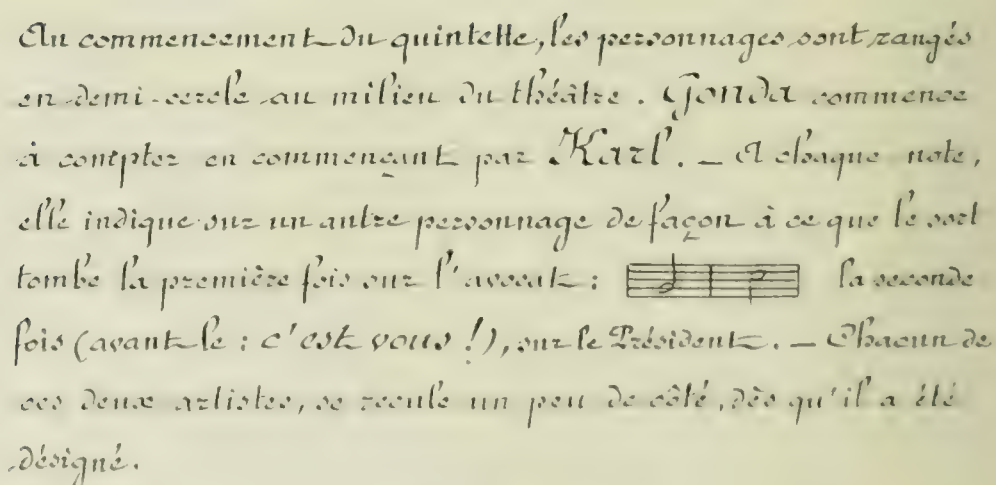 Au commencement du quintette, les personnages sont rangés
en demi-cercle au milieu du théâtre. Gonda commence
à compter en commençant par Karl. — A chaque note,
elle indique sur un autre personnage de façon à ce que le sort
tombe la première fois sur l'avocat : la seconde
fois (avant le : c'est vous !), sur le Président. — Chacun de
ces deux artistes, se recule un peu de côté, dès qu'il a été
désigné.